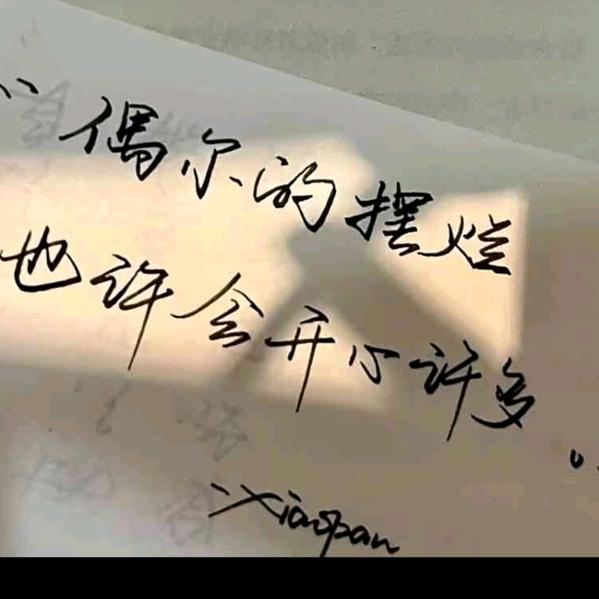 “偶尔的摆烂
也许会开心许多
:Xiaopan